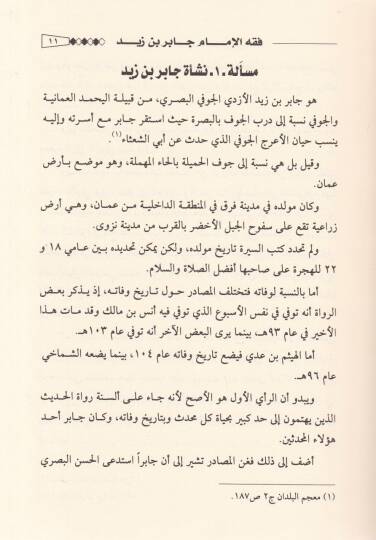 فقه الإمام جابر بن زيد
١١
مسألة ١٠. نشأة جابر بن زيد
هو جابر بن زيد الأزدي الجوفي البصري، من قبيلة اليحمد العمانية
والجوفي نسبة إلى درب الجوف بالبصرة حيث استقر جابر مع أسرته وإليه
ينسب حيان الأعرج الجوفي الذي حدث عن أبي الشعثاء(١).
وقيل بل هي نسبة إلى جوف الحميلة بالحاء المهملة، وهو موضع بأرض
عمان.
وكان مولده في مدينة فرق في المنطقة الداخلية من عمان، وهي أرض
زراعية تقع على سفوح الجبل الأخضر بالقرب من مدينة نزوى.
ولم تحدد كتب السيرة تاريخ مولده، ولكن يمكن تحديده بين عامي ١٨ و
٢٢ للهجرة على صاحبها أفضل الصلاة والسلام.
أما بالنسبة لوفاته فتختلف المصادر حول تاريخ وفاته، إذ يذكر بعض
الرواة أنه توفي في نفس الأسبوع الذي توفي فيه أنس بن مالك وقد مات هذا
الأخير في عام ٩٣هـ، بينما يرى البعض الآخر أنه توفي عام ١٠٣هـ.
أما الهيثم بن عدي فيضع تاريخ وفاته عام ١٠٤، بينما يضعه الشماخي
عام ٩٦هـ.
ويبدو أن الرأي الأول هو الأصح لأنه جاء على ألسنة رواة الحديث
الذين يهتمون إلى حد كبير بحياة كل محدث وبتاريخ وفاته، وكان جابر أحد
هؤلاء المحدثين.
أضف إلى ذلك فغن المصادر تشير إلى أن جابراً استدعى الحسن البصري
(١) معجم البلدان ج٢ ص١٨٧.